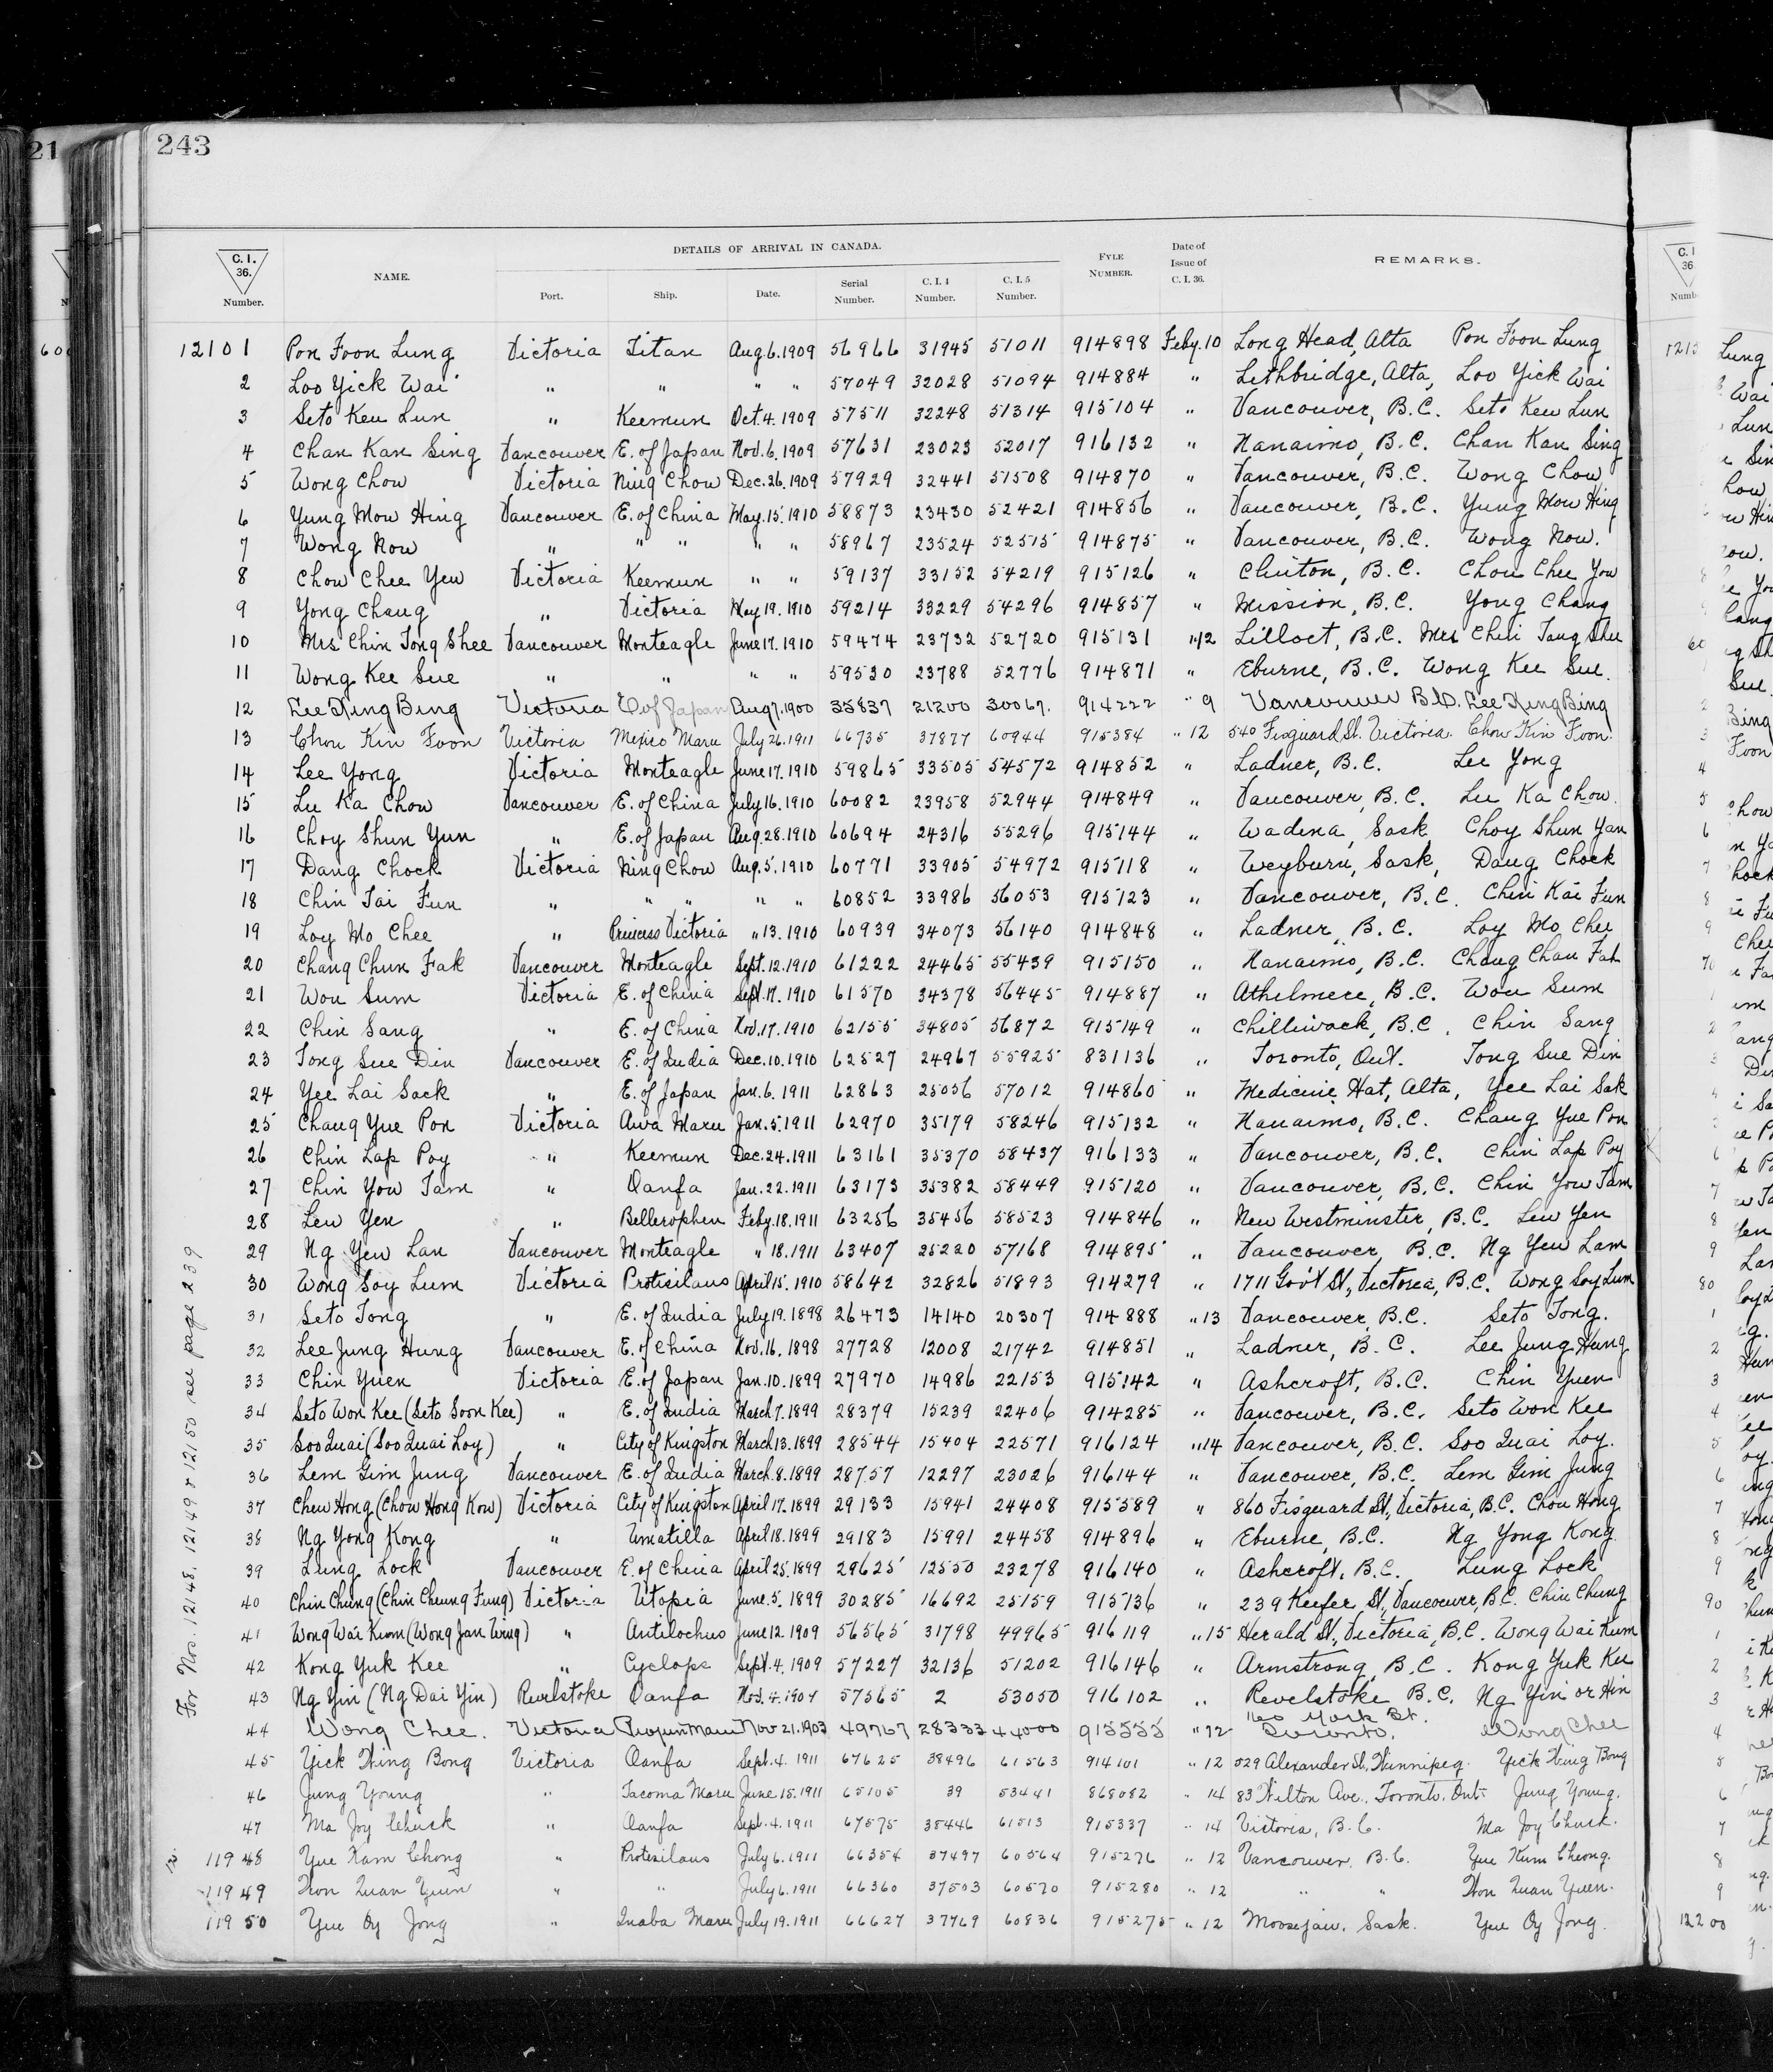 21
243
DETAILS OF ARRIVAL IN CANADA.
C. I. 36. Number. NAME. Port. Ship. Date. Serial Number. C. I. 4 Number. C. I. 5 Number. FYLE NUMBER. Date of Issue of C. I. 36. REMARKS.
12101 Pon Foon Lung Victoria Titan Aug 6. 1909 56966 31945 51011 914898 Feby. 10 Long Head, Alta Pon Foon Lung
2 Loo Yick Wai " " " " 57049 32028 51094 914884 " Lethbridge, Alta, Loo Yick Wai
3 Seto Keu Lun " Keemun Oct. 4. 1909 57511 32248 51314 915104 " Vancouver, B.C. Seto Keu Lun
4 Chan Kan Sing Vancouver E. of Japan Nov. 6. 1909 57631 23023 52017 916132 " Nanaimo, B.C. Chan Kan Sing
5 Wong Chow Victoria Ning Chow Dec. 26. 1909 57929 32441 51508 914870 " Vancouver, B.C. Wong Chow
6 Yung Mow Hing Vancouver E. of China May. 15. 1910 58873 23430 52421 914856 " Vancouver, B.C. Yung Mow Hing
7 Wong Now " " " " " 58967 23524 52515 914875 " Vancouver, B.C. Wong Now.
8 Chow Chee Yew Victoria Keemun " " 59137 33152 54219 915126 " Clinton, B.C. Chow Chee You
9 Yong Chang " Victoria May 19. 1910 59214 33229 54296 914857 " Mission, B.C. Yong Chang
10 Mrs Chin Tong Shee Vancouver Monteagle June 17. 1910 59474 23732 52720 915131 " 12 Lilloet, B.C. Mrs Chin Tang Shee
11 Wong Kee Sue " " " " 59530 23788 52776 914871 " Eburne, B.C. Wong Kee Sue.
12 Lee King Bing Victoria E of Japan Aug 7. 1900 35837 21200 30067. 914222 " 9 Vancouver B.C. Lee King Bing
13 Chow Kin Foon Victoria Mexico Maru July 26. 1911 66735 37877 60944 915384 " 12 540 Fisguard St. Victoria. Chow Kin Foon.
14 Lee Yong Victoria Monteagle June 17. 1910 59865 33505 54572 914852 " Ladner, B.C. Lee Yong
15 Lu Ka Chow Vancouver E. of China July 16. 1910 60082 23958 52944 914849 " Vancouver, B.C. Lu Ka Chow.
16 Choy Shun Yun " E. of Japan Aug. 28. 1910 60694 24316 55296 915144 " Wadena, Sask Choy Shun Yan
17 Dang Chock Victoria Ning Chow Aug. 5. 1910 60771 33905 54972 915118 " Weyburn, Sask, Dang Chock
18 Chin Tai Fun " " " " " 60852 33986 56053 915123 " Vancouver, B.C. Chin Kai Fun
19 Loy Mo Chee " Princess Victoria " 13. 1910 60939 34073 56140 914848 " Ladner, B.C. Loy Mo Chee
20 Chang Chun Fak Vancouver Monteagle Sept. 12. 1910 61222 24465 55439 915150 " Nanaimo, B.C. Chang Chan Fah
21 Wou Sum Victoria E. of China Sept. 17. 1910 61570 34378 56445 914887 " Athelmere, B.C. Wou Sum
22 Chin Sang " E. of China Nov. 17. 1910 62155 34805 56872 915149 " Chilliwack, B.C. Chin Sang
23 Tong Sue Din Vancouver E. of India Dec. 10. 1910 62527 24967 55925 831136 " Toronto, Ont. Tong Sue Din
24 Yee Lai Sack " E. of Japan Jan. 6. 1911 62863 25056 57012 914860 " Medicine Hat, Alta, Yee Lai Sak
25 Chang Yue Pon Victoria Awa Maru Jan. 5. 1911 62970 35179 58246 915132 " Nanaimo, B.C. Chang Yue Pon
26 Chin Lap Poy " Keemun Dec. 24. 1911 63161 35370 58437 916133 " Vancouver, B.C. Chin Lap Poy
27 Chin You Tam " Oanfa Jan. 22. 1911 63173 35382 58449 915120 " Vancouver, B.C. Chin You Tam
28 Lew Yen " Bellerophen Feby. 18. 1911 63256 35456 58523 914846 " New Westminster, B.C. Lew Yen
29 Ng Yew Lan Vancouver Monteagle " 18. 1911 63407 25220 57168 914895 " Vancouver, B.C. Ng Yew Lam
30 Wong Soy Lum Victoria Protisilaus April 15. 1910 58642 32826 51893 914279 " 1711 Gov't St., Victoria, B.C. Wong Soy Lum
31 Seto Tong " E. of India July 19. 1898 26473 14140 20307 914888 " 13 Vancouver, B.C. Seto Tong.
32 Lee Jung Hung Vancouver E. of China Nov. 16. 1898 27728 12008 21742 914851 " Ladner, B.C. Lee Jung Hung
33 Chin Yuen Victoria E. of Japan Jan. 10. 1899 27970 14986 22153 915142 " Ashcroft, B.C. Chin Yuen
34 Seto Won Kee (Seto Soon Kee) " E. of India March 7. 1899 28379 15239 22406 914285 " Vancouver, B.C. Seto Won Kee
35 Soo Quai (Soo Quai Loy) " City of Kingston March 13. 1899 28544 15404 22571 916124 " 14 Vancouver, B.C. Soo Quai Loy.
36 Lem Gim Jung Vancouver E. of India March. 8. 1899 28757 12297 23026 916144 " Vancouver, B.C. Lem Gim Jung
37 Chew Hong (Chow Hong Kow) Victoria City of Kingston April 17. 1899 29133 15941 24408 915589 " 860 Fisguard St., Victoria, B.C. Chou Hong
38 Ng Yong Kong " Umatilla April 18. 1899 29183 15991 24458 914896 " Eburne, B.C. Ng Yong Kong.
39 Lung Lock Vancouver E. of China April 25. 1899 29625 12550 23278 916140 " Ashcroft, B.C. Lung Lock
40 Chin Chung (Chin Cheung Fung) Victoria Utopia June. 5. 1899 30285 16692 25159 915736 " 239 Keefer St., Vancouver, B.C. Chin Chung
41 Wong Wai Kum (Wong Jan Wing) " Antilochus June 12. 1909 56565 31798 49965 916119 " 15 Herald St., Victoria, B.C. Wong Wai Kum
42 Kong Yuk Kee " Cyclops Sept. 4. 1909 57227 32136 51202 916146 " Armstrong, B.C. Kong Yuk Kee
43 Ng Yin (Ng Dai Yin) Revelstoke Oanfa Nov. 4. 1907 57565 2 53050 916102 " Revelstoke B.C. Ng Yin or Hin
44 Wong Chee. Victoria Nov 21. 1903 49767 28333 44000 915555 " 12 160 York St. Toronto. Wong Chee
45 Yick Wing Bong Victoria Oanfa Sept. 4. 1911 67625 38496 61563 914101 " 12 529 Alexander St., Winnipeg. Yick Wing Bong
46 Jung Young " Tacoma Maru June 15. 1911 65105 39 53441 868082 " 14 83 Wilton Ave., Toronto, Ont. Jung Young.
47 Ma Joy Chuck " Oanfa Sept. 4. 1911 67575 38446 61513 915337 " 14 Victoria, B.C. Ma Joy Chuck.
11948 Yue Kam Chong " Protesilaus July 6. 1911 66354 37497 60564 915276 " 12 Vancouver. B.C. Yue Kum Cheong.
11949 Won Quan Yuen " " July 6. 1911 66360 37503 60570 915280 " 12 " " Won Quan Yuen.
11950 Yue Oy Jong " Inaba Maru July 19. 1911 66627 37769 60836 915275 " 12 Moosejaw. Sask. Yue Oy Jong.
For Nos. 12148, 12149 & 12150 see page 239
12200